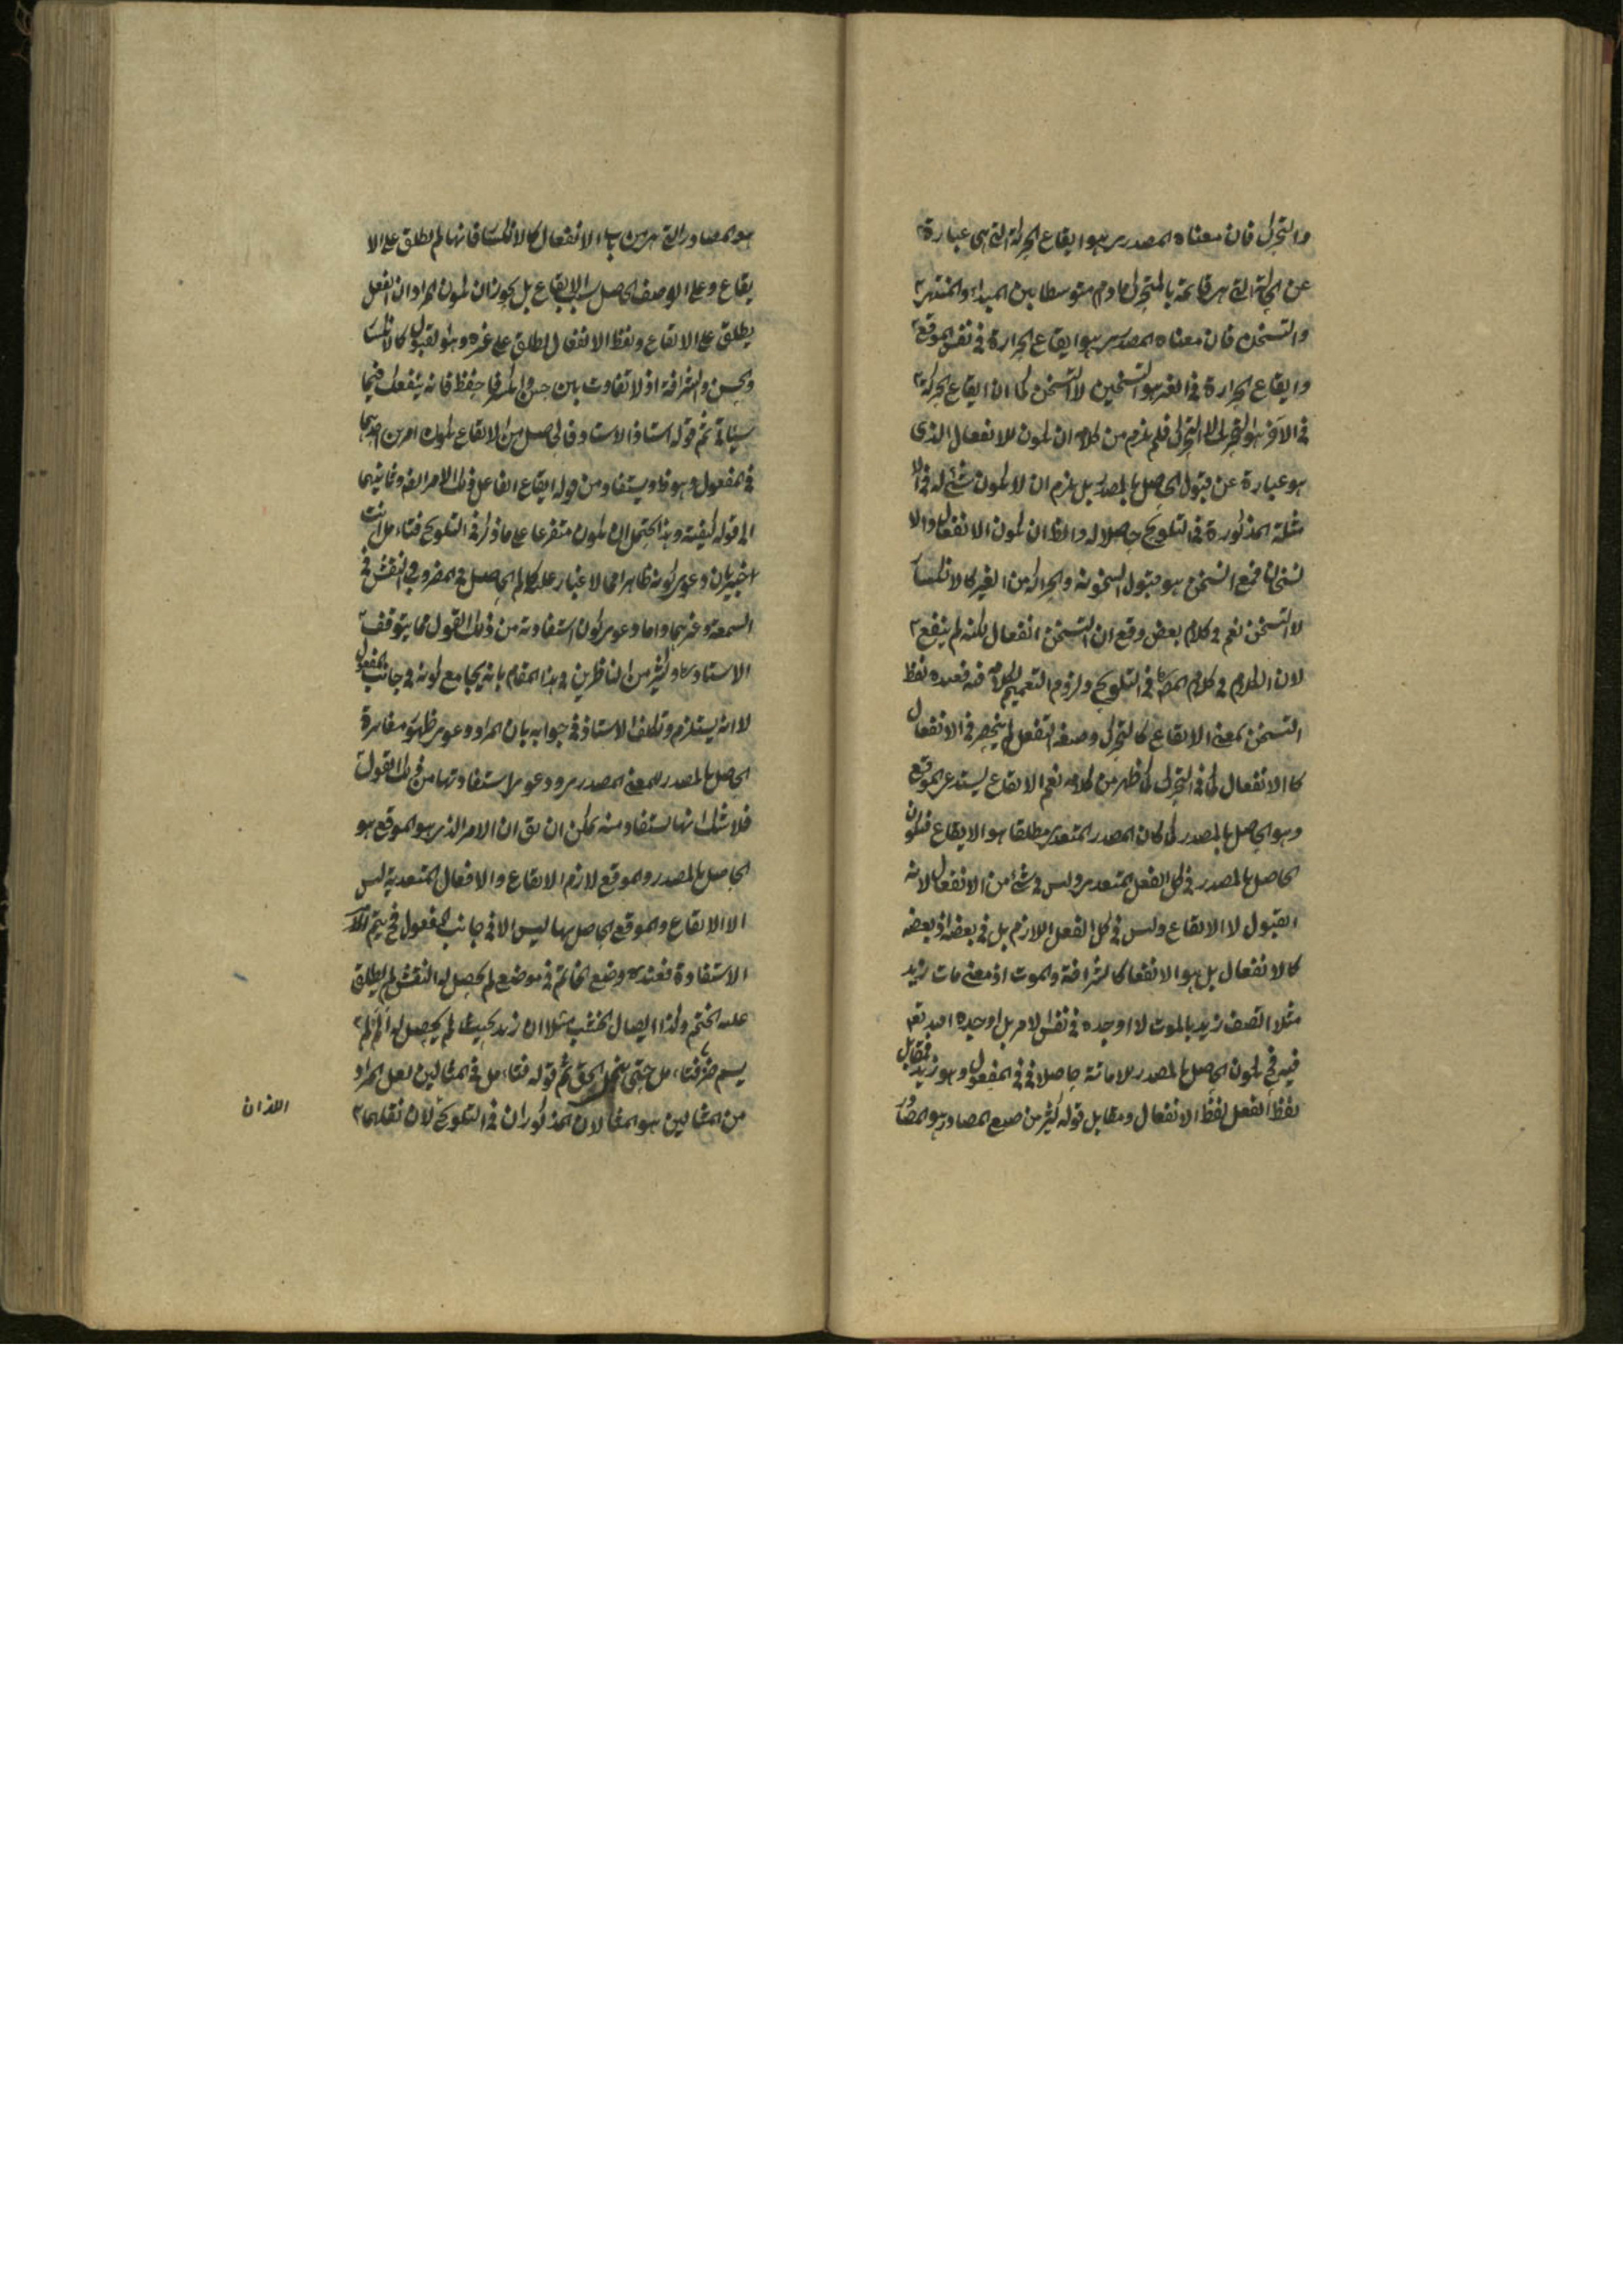 والتحرك فان معناه المصدرى هو ايقاع الحركة التى هى عبارة
عن الحالة التى هى قائمة بالمتحرك مادام متوسطا بين المبدأ والمنتهى
والتسخن فان معناه المصدرى هو ايقاع الحرارة فى نفس الموقع
وايقاع الحرارة فى الغير هو التسخين لا التسخن كما ان ايقاع الحركة
فى الآخر هو التحريك لا التحرك فلم يلزم من كلامه ان يكون للانفعال الذى
هو عبارة عن قبول الحاصل بالمصدر بل يلزم ان لا يكون شئ له فى الا
مثلة المذكورة فى التلويح حاصلا له والظ ان يكون الانفعال والا
لتسخان فمع التسخن هو قبول السخونة والحركة من الغير كالانكسار
لا التسخن نعم فى كلام بعض وقع ان التسخن انفعال لكنه لم ينفع
لان الكلام فى كلام المص فى التلويح ولزوم التعميم لكلامه فيه فعنده لفظ
التسخن بمعنى الايقاع كالتحرك وصيغة التفعل لم ينحصر فى الانفعال
كا الانفعال كما فى التحرك كما ظهر من كلامه نعم الايقاع يستدعى الموقع
وهو الحاصل بالمصدر كما كان المصدر المتعدى مطلقا هو الايقاع فيكون
الحاصل بالمصدر فى كل الفعل المتعدى وليس فى شئ من الانفعال لانه
القبول لا الايقاع وليس فى كل الفعل اللازم بل فى بعضه اذ بعضه
كالانفعال بل هو الانفعال كالشرافة والموت اذ معنى مات زيد
مثلا اتصف زيد بالموت لا اوجده فى نفس الامر بل اوجده الله تعم
فيه فح يكون الحاصل بالمصدر للاماتة حاصلا فى فى المفعول وهو زيد فمقابل
لفظ الفعل لفظ الانفعال ومقابل قوله كثير من صيغ المصادر هو المصادر
هو المصادر التى هى من باب الانفعال كالانكسار فانها لم يطلق على الا
يقاع وعلى الوصف الحاصل بسبب الايقاع بل يجوز ان يكون المراد ان الفعل
يطلق على الايقاع ولفظ الانفعال يطلق على غيره وهو القبول كالانكسار
والحسن والشرافة اذ لا تفاوت بين حسن وانكسر فاحفظ فانه ينفعك فيما
سيأتى ثم قوله استاذ الاستاد فالحاصل من الايقاع يكون امرين احديهما
فى المفعول وهو ظ ويستفاد من قوله ايقاع الفاعل ذلك الامر الغه وثانيهما
الى قوله كيفية وهذا يحتمل ان يكون متفرعا على ما ذكر فى التلويح فتامل انت
خبير بان دعوى كونه ظاهرا مما لا غبار عليه كالم الحاصل فى المضروب والنقش فى
الشمعة وغيرهما واما دعوى كون استفادته من ذلك القول مما يتوقف
الاستاد وكثير من الناظرين فى هذا المقام بانه يجامع كونه فى جانب المفعول
لا انه يستلزم وتكلف الاستاذ فى جوابه بان المراد دعوى ظهور مغايرة
الحاصل بالمصدر للمعنى المصدرى ودعوى استفادتها من ذلك القول
فلا شك انها يستفاد منه يمكن ان يق ان الامر الذى هو الموقع هو
الحاصل بالمصدر والموقع لازم الايقاع والافعال المتعدية ليس
الا الايقاع والموقع الحاصل بها ليس الا فى جانب المفعول فح يتم
الاستفادة فعنده وضع الخاتم فى موضع لم يحصل له النقش لم يطلق
عليه الختم ولذا ايصال الخشب مثلا ان زيد بحيث لم يحصل له الم لم
يسم ضربا فتامل حتى الحق ثم قوله فتامل فى المثالين لعل المراد
من المثالين هو المثالان المذكوران فى التلويح لان نقلهما
اللذان